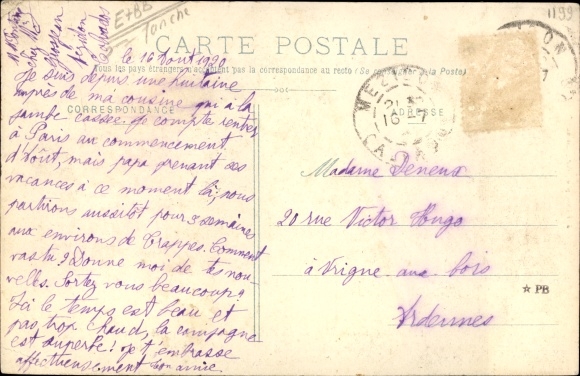 E+BB
Tonche
1199
CARTE POSTALE
le 16 Août 1920
Tous les pays étrangers n'acceptent pas la correspondance au recto (Se renseigner à la Poste)
CORRESPONDANCE
ADRESSE
Je suis depuis une huitaine
auprès de ma cousine qui a la
jambe cassée. Je compte rentrer
à Paris au commencement
d'Août, mais papa prenant ses
vacances à ce moment là, nous
partirons aussitôt pour 3 semaines
aux environs de Trappes. Comment
vas tu? Donne moi de tes nou-
velles. Sortez vous beaucoup?
Ici le temps est beau et
pas trop chaud, la campagne
est superbe! Je t'embrasse
affectueusement ton amie
Madame Peneux
20 rue Victor Hugo
à Vrigne aux bois
Ardennes
PB